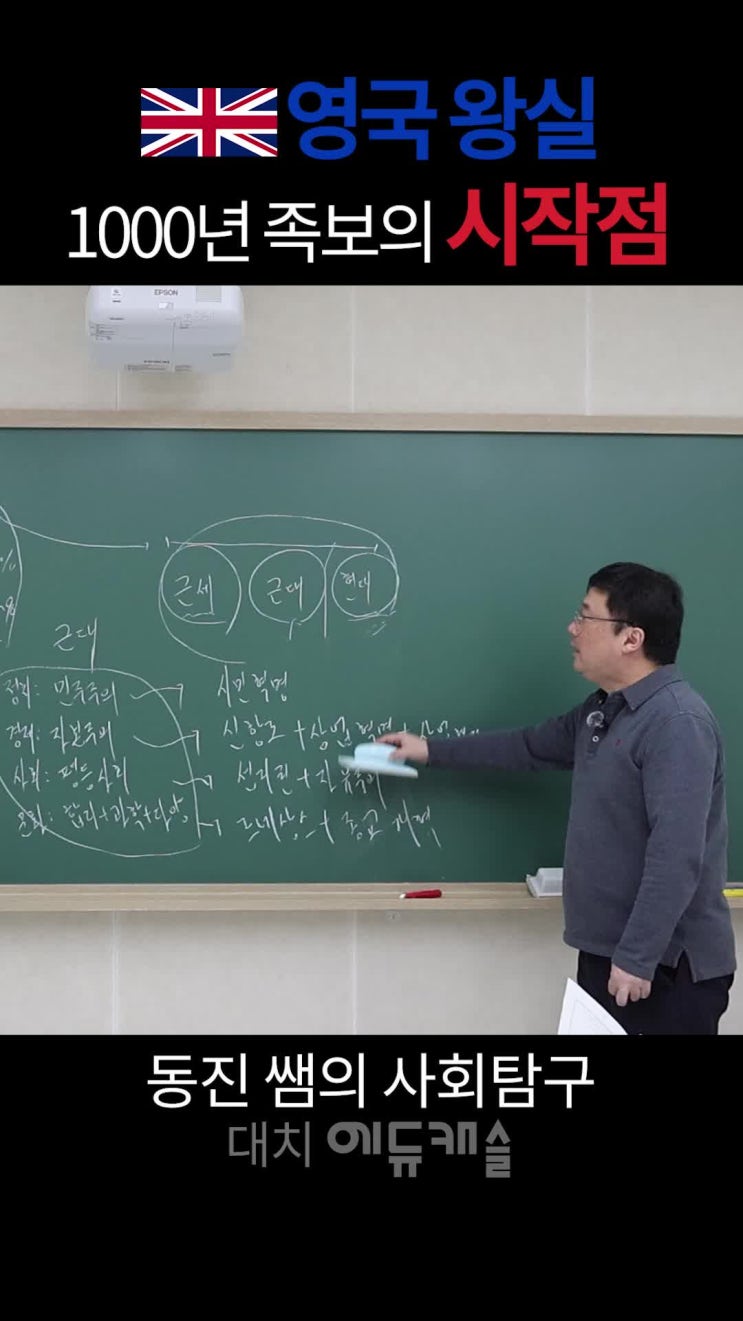 영국 왕실
1000년 족보의 시작점
EPSON
근세 근대 현대
%
%
근대
정치: 민주주의 → 시민혁명
경제: 자본주의 → 신항로 + 상업혁명 +
사회: 평등사회 →
문화: 합리+과학+다양 → 르네상스 + 종교개혁
동진 쌤의 사회탐구
대치 에듀캐슬